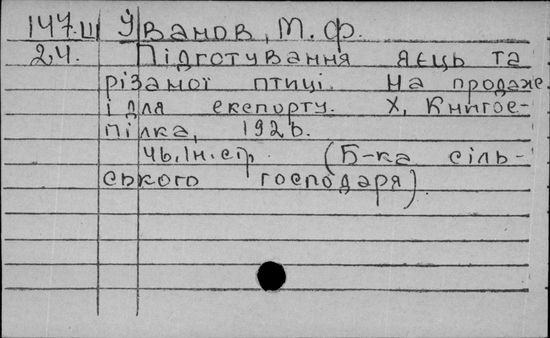 147.ш Ўванов, М. Ф.
24. Підготування яєць та
різаної птиці. на продаже.
і для експорту. Х, Книгос-
пілка, 1926.
46, Ін. ст. (Б-ка сіль-
ського господаря).